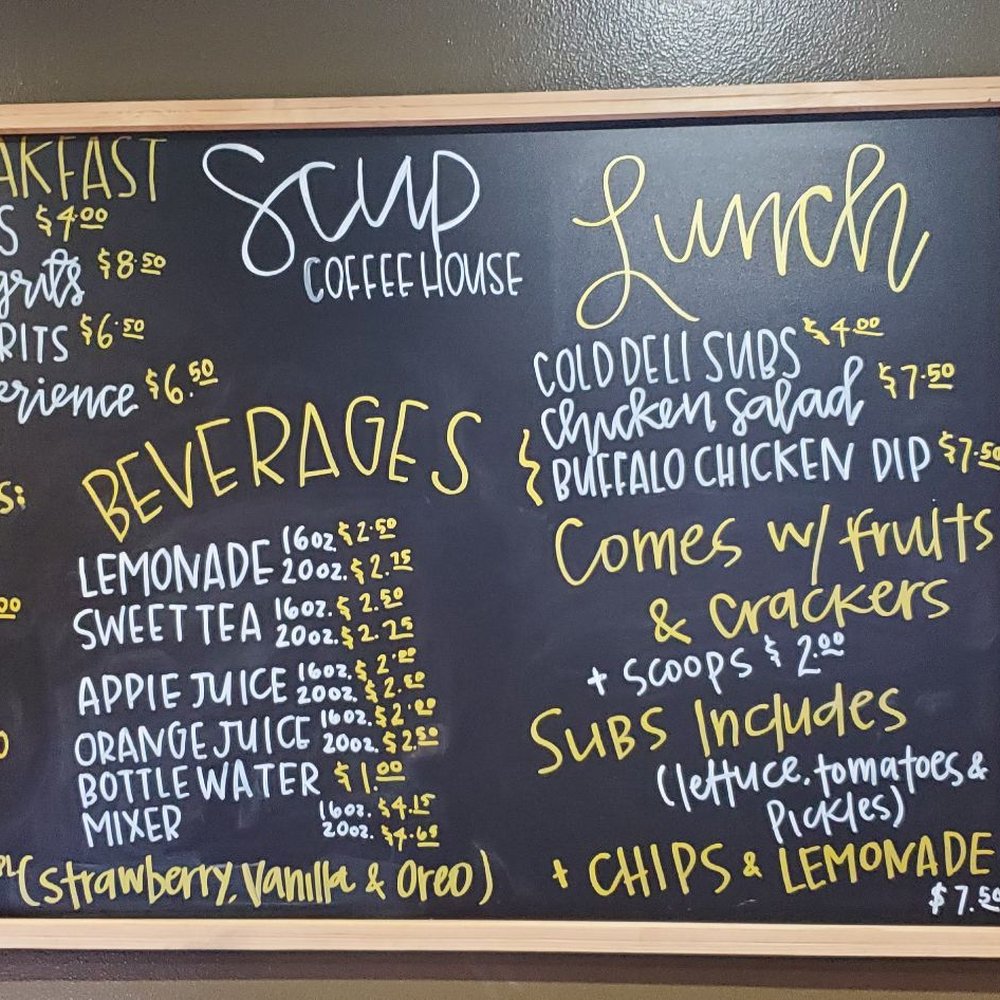 AKFAST
S $4.00
grits $8.50
RITS $6.50
erience $6.50
S:
00
0
Scup
COFFEE HOUSE
BEVERAGES
LEMONADE 16oz. $2.50
20oz. $2.75
SWEET TEA 16oz. $2.50
20oz. $2.75
APPLE JUICE 16oz. $2.00
20oz. $2.50
ORANGE JUICE 16oz. $2.00
20oz. $2.50
BOTTLE WATER $1.00
MIXER 16oz. $4.15
20oz. $4.65
(Strawberry, Vanilla & Oreo)
Lunch
COLD DELI SUBS $4.00
Chicken Salad $7.50
BUFFALO CHICKEN DIP $7.50
Comes w/ fruits
& crackers
+ SCOOPS $2.00
SUBS Includes
(lettuce, tomatoes &
Pickles)
+ CHIPS & LEMONADE
$7.50